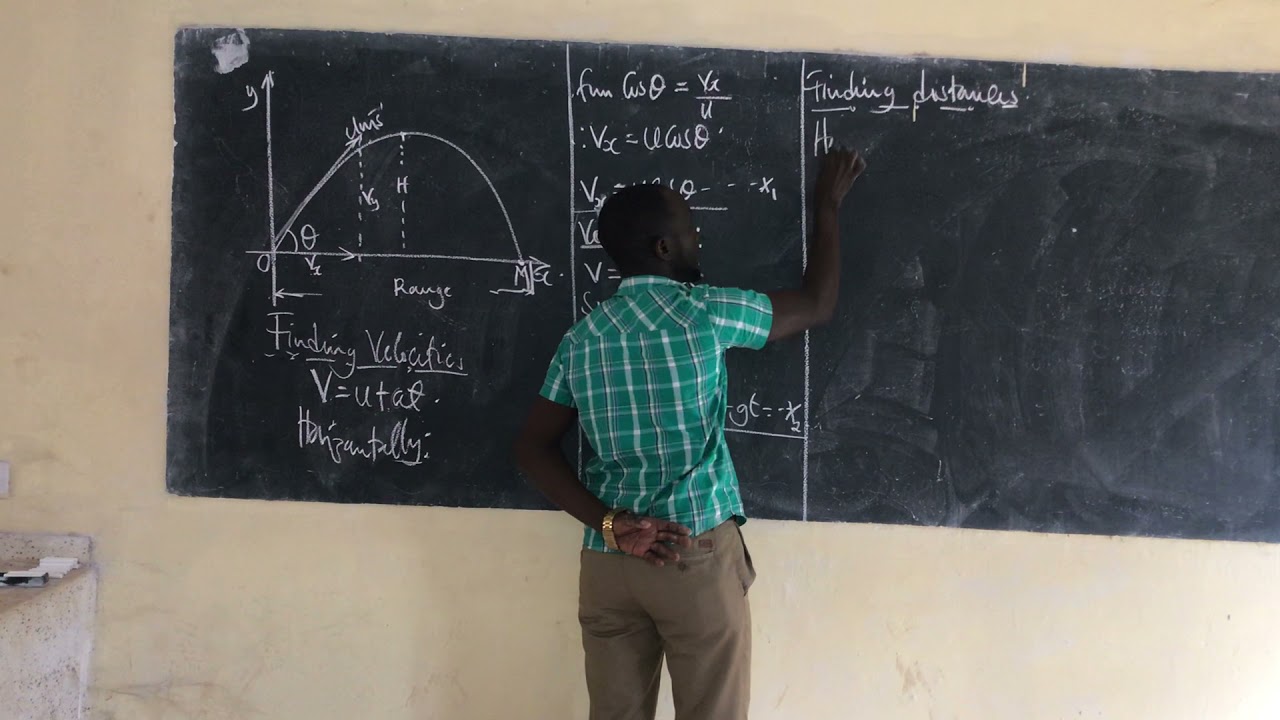 y
ums⁻¹
H
Vy
θ
O
Vx
M
x
Range
Finding Velocities
V = u + at.
Horizontally:
from Cosθ = Vx/u
∴ Vx = UCosθ
Vx = UCosθ - - - -x₁
V =
-gt = -x₂
Finding distances.
Ho